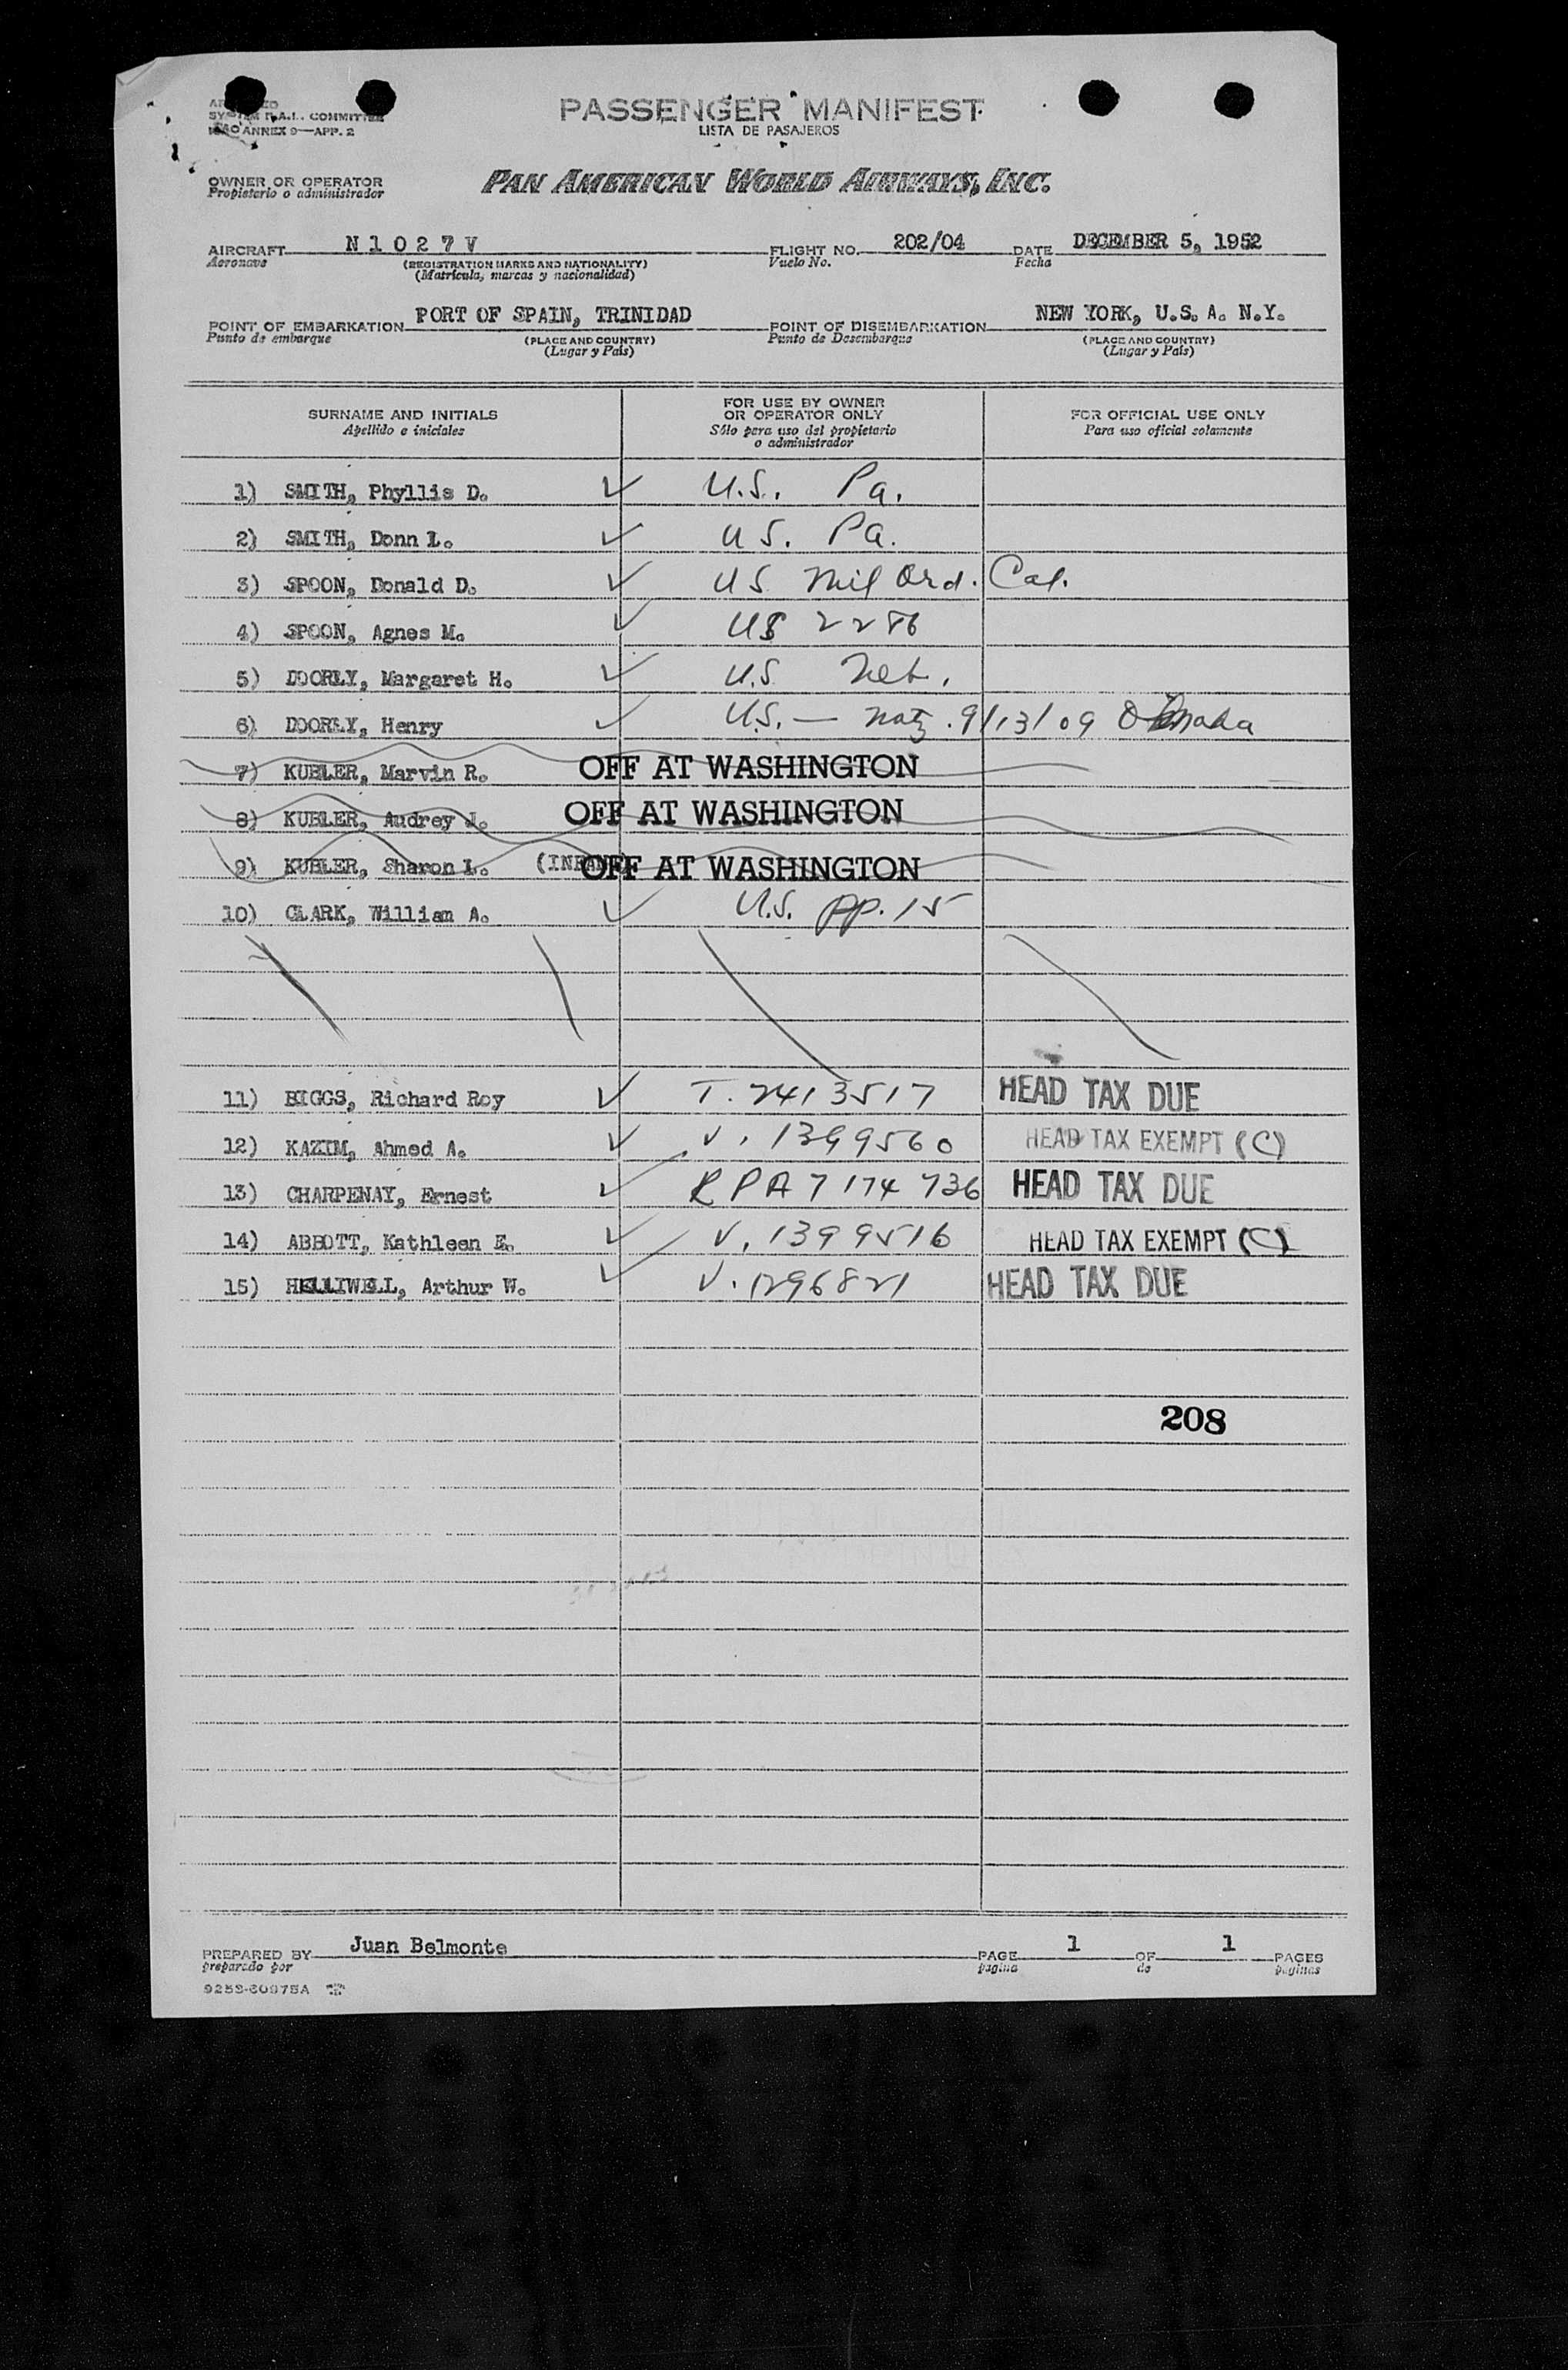 PASSENGER MANIFEST
LISTA DE PASAJEROS
COMMITTEE
ANNEX 9—APP. 2
OWNER OR OPERATOR
Propietario o administrador
PAN AMERICAN WORLD AIRWAYS, INC.
AIRCRAFT N 1 0 2 7 V FLIGHT NO. 202/04 DATE DECEMBER 5, 1952
Aeronave (REGISTRATION MARKS AND NATIONALITY) Vuelo No. Fecha
(Matrícula, marcas y nacionalidad)
POINT OF EMBARKATION PORT OF SPAIN, TRINIDAD POINT OF DISEMBARKATION NEW YORK, U.S.A. N.Y.
Punto de embarque (PLACE AND COUNTRY) Punto de Desembarque (PLACE AND COUNTRY)
(Lugar y País) (Lugar y País)
SURNAME AND INITIALS FOR USE BY OWNER OR OPERATOR ONLY FOR OFFICIAL USE ONLY
Apellido e iniciales Sólo para uso del propietario o administrador Para uso oficial solamente
1) SMITH, Phyllis D. ✓ U.S. Pa.
2) SMITH, Donn L. ✓ U S. Pa.
3) SPOON, Donald D. ✓ U S Mil Ord. Cal.
4) SPOON, Agnes M. ✓ US 2286
5) DOORLY, Margaret H. ✓ U.S. Neb.
6) DOORLY, Henry ✓ U.S. — Natz. 9/13/09 Omaha
7) KUBLER, Marvin R. OFF AT WASHINGTON
8) KUBLER, Audrey J. OFF AT WASHINGTON
9) KUBLER, Sharon L. (INFANT) OFF AT WASHINGTON
10) CLARK, William A. ✓ U.S. pp. 15
11) BIGGS, Richard Roy ✓ T. 2413517 HEAD TAX DUE
12) KAZIM, Ahmed A. ✓ V. 1399560 HEAD TAX EXEMPT (C)
13) CHARPENAY, Ernest ✓ RPA7174736 HEAD TAX DUE
14) ABBOTT, Kathleen E. ✓ V. 1399516 HEAD TAX EXEMPT (C)
15) HELLIWELL, Arthur W. ✓ V. 1296821 HEAD TAX DUE
208
PREPARED BY Juan Belmonte PAGE 1 OF 1 PAGES
preparado por página de páginas